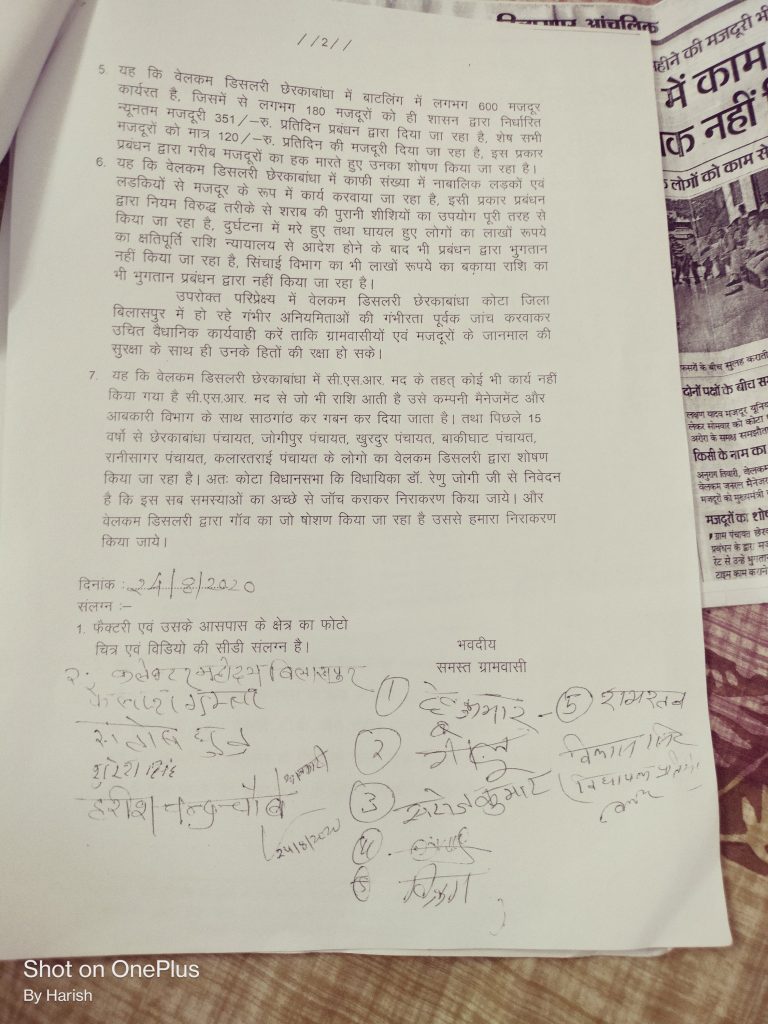 //2//
5. यह कि वेलकम डिसलरी छेरकाबांधा में बाटलिंग में लगभग 600 मजदूर
कार्यरत है, जिसमें से लगभग 180 मजदूरों को ही शासन द्वारा निर्धारित
न्यूनतम मजदूरी 351/–रु. प्रतिदिन प्रबंधन द्वारा दिया जा रहा है, शेष सभी
मजदूरों को मात्र 120/–रु. प्रतिदिन की मजदूरी दिया जा रहा है, इस प्रकार
प्रबंधन द्वारा गरीब मजदूरों का हक मारते हुए उनका शोषण किया जा रहा है।
6. यह कि वेलकम डिसलरी छेरकाबांधा में काफी संख्या में नाबालिक लडकों एवं
लडकियों से मजदूर के रूप में कार्य करवाया जा रहा है, इसी प्रकार प्रबंधन
द्वारा नियम विरुद्ध तरीके से शराब की पुरानी शीशियों का उपयोग पूरी तरह से
किया जा रहा है, दुर्घटना में मरे हुए तथा घायल हुए लोगों का लाखों रूपये
का क्षतिपूर्ति राशि न्यायालय से आदेश होने के बाद भी प्रबंधन द्वारा भुगतान
नहीं किया जा रहा है, सिंचाई विभाग का भी लाखों रूपये का बकाया राशि का
भी भुगतान प्रबंधन द्वारा नहीं किया जा रहा है।
उपरोक्त परिप्रेक्ष्य में वेलकम डिसलरी छेरकाबांधा कोटा जिला
बिलासपुर में हो रहे गंभीर अनियमिताओं की गंभीरता पूर्वक जांच करवाकर
उचित वैधानिक कार्यवाही करें ताकि ग्रामवासीयों एवं मजदूरों के जानमाल की
सुरक्षा के साथ ही उनके हितों की रक्षा हो सके।
7. यह कि वेलकम डिसलरी छेरकाबांधा में सी.एस.आर. मद के तहत् कोई भी कार्य नहीं
किया गया है सी.एस.आर. मद से जो भी राशि आती है उसे कम्पनी मैनेजमेंट और
आबकारी विभाग के साथ साठगांठ कर गबन कर दिया जाता है। तथा पिछले 15
वर्षो से छेरकाबांधा पंचायत, जोगीपुर पंचायत, खुरदुर पंचायत, बाकीघाट पंचायत,
रानीसागर पंचायत, कलारतराई पंचायत के लोगो का वेलकम डिसलरी द्वारा शोषण
किया जा रहा है। अतः कोटा विधानसभा कि विधायिका डॉ. रेणु जोगी जी से निवेदन
है कि इस सब समस्याओं का अच्छे से जॉच कराकर निराकरण किया जाये। और
वेलकम डिसलरी द्वारा गॉव का जो षोशण किया जा रहा है उससे हमारा निराकरण
किया जाये।
दिनांक :– 24/8/2020
संलग्न :–
1. फैक्टरी एवं उसके आसपास के क्षेत्र का फोटो
चित्र एवं विडियो की सीडी संलग्न है।
भवदीय
समस्त ग्रामवासी
2. कलेक्टर महोदय बिलासपुर
1
5 रामरतन
2
सुरेश सिंह
3 सरोज कुमार
हरीश चन्द्र चौबे
24/8/2020
4
5 विक्रम
आंचलिक
हीने की मजदूरी भी
में काम
क नहीं
लोगों को काम से
के बीच सुलह कराती
दोनों पक्षों के बीच सम
लक्षण यादव मजदूर यूनिय
लेकर सोमवार को कोटा
के समक्ष समझौता
किसी के नाम का
अनुराग तिवारी, वेलकम
वेलकम जनरल मैनेजर
मजदूरों को मुख्यमंत्री
मजदूरों का शो
ग्राम पंचायत छेर
प्रबंधन के द्वारा मज
रेट से उन्हें भुगतान
टाइम काम कराने
Shot on OnePlus
By Harish